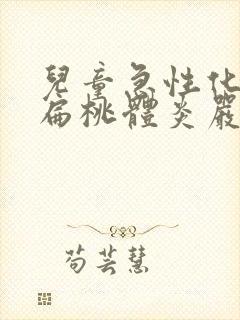 兒童急性化
扁桃體炎嚴
苟芸慧